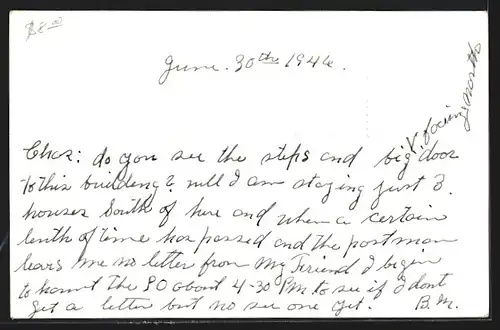 $8.00
June. 30th 1946.
& facing north
Chas: do you see the steps and big door
to this building?, well I am staying just 3.
houses South of here and when a certain
lenth of time has passed and the postman
lears me no letter from My Friend I begin
to haunt the PO about 4-30 PM to see if I dont
get a letter but no see one yet. B.M.